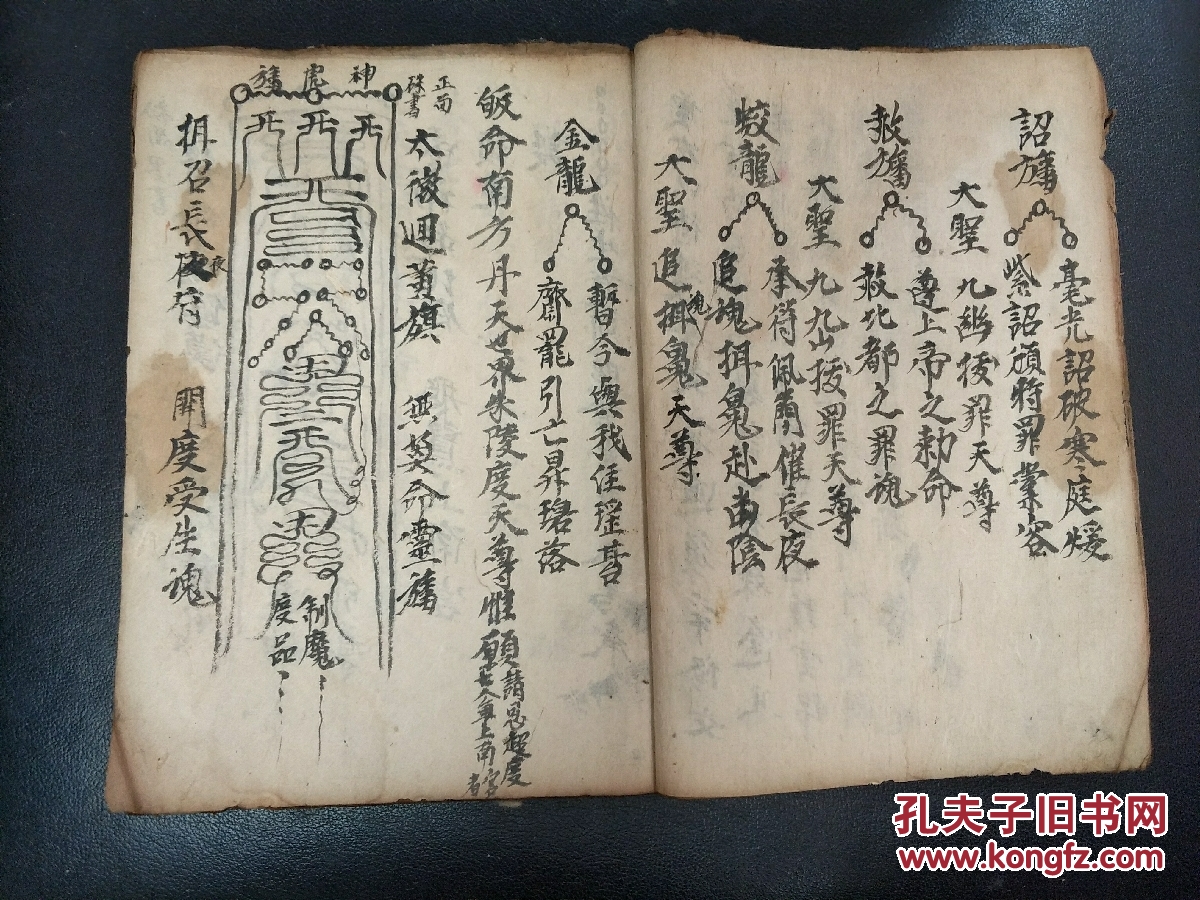 詔旛
毫光詔破寒庭煖
紫詔頒將罪業容
大聖九幽拔罪天尊
赦旛
遵上帝之勅命
赦北都之罪魂
大聖九九山拔罪天尊
蛟龍
承符佩蘭催長夜
追魂攝鬼赴南陰
大聖追攝鬼天尊
魂
金龍
暫今與我往瑤
齋罷引亡昇珞落
皈命南方丹天世界朱陵度天尊惟願
請恩超度
上南宮者
正面
硃書
太微迴黃旗
無英命靈旛
神虎旛
制魔
度品
攝召長夜府
夜
開度受生魂
孔夫子旧书网
www.kongfz.com